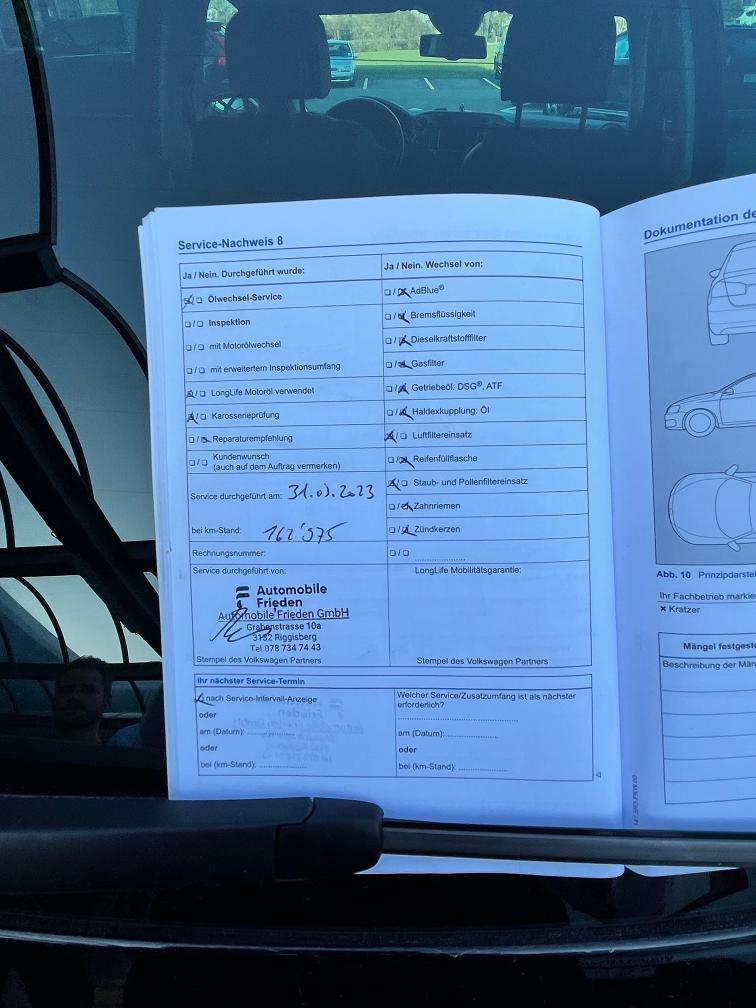 Service-Nachweis 8
Ja / Nein. Durchgeführt wurde:
☒/☐ Ölwechsel-Service
☐/☐ Inspektion
☐/☐ mit Motorölwechsel
☐/☐ mit erweitertem Inspektionsumfang
☒/☐ LongLife Motoröl verwendet
☒/☐ Karosserieprüfung
☐/☒ Reparaturempfehlung
☐/☐ Kundenwunsch
(auch auf dem Auftrag vermerken)
Service durchgeführt am: 31.03.2023
bei km-Stand: 162'575
Rechnungsnummer:
Service durchgeführt von:
Automobile
Frieden
Automobile Frieden GmbH
Grabenstrasse 10a
3132 Riggisberg
Tel 078 734 74 43
Stempel des Volkswagen Partners
Ja / Nein. Wechsel von:
☐/☒ AdBlue®
☐/☒ Bremsflüssigkeit
☐/☒ Dieselkraftstofffilter
☐/☒ Gasfilter
☐/☒ Getriebeöl: DSG®, ATF
☐/☒ Haldexkupplung: Öl
☒/☐ Luftfiltereinsatz
☐/☒ Reifenfüllflasche
☒/☐ Staub- und Pollenfiltereinsatz
☐/☒ Zahnriemen
☐/☒ Zündkerzen
☐/☐ ....................
LongLife Mobilitätsgarantie:
Stempel des Volkswagen Partners
Ihr nächster Service-Termin
nach Service-Intervall-Anzeige
oder
am (Datum): ....................
oder
bei (km-Stand): ....................
Welcher Service/Zusatzumfang ist als nächster
erforderlich?
....................
am (Datum): ....................
oder
bei (km-Stand): ....................
Dokumentation de
Abb. 10 Prinzipdarstel
Ihr Fachbetrieb markie
× Kratzer
Mängel festgest
Beschreibung der Män